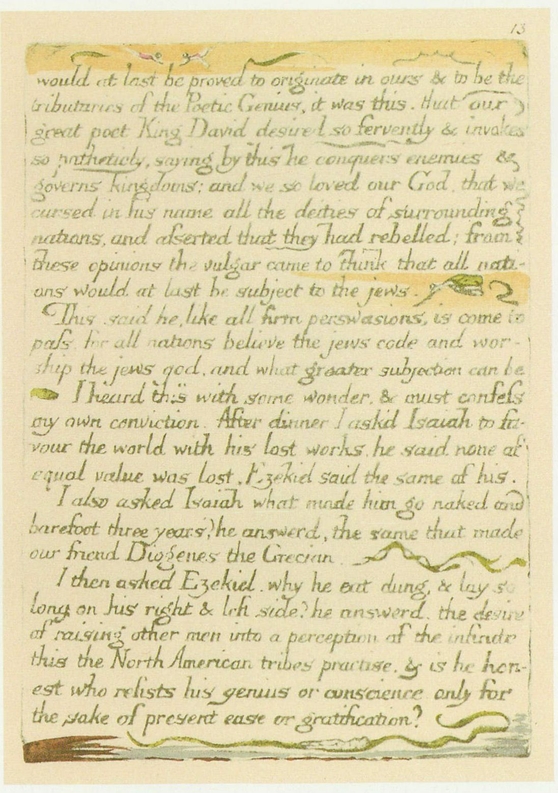 13
would at last be proved to originate in ours & to be the
tributaries of the Poetic Genius, it was this. that our
great poet King David desired so fervently & invokes
so patheticly, saying by this he conquers enemies &
governs kingdoms; and we so loved our God. that we
cursed in his name all the deities of surrounding
nations, and asserted that they had rebelled; from
these opinions the vulgar came to think that all nati-
ons would at last be subject to the jews.
This said he, like all firm perswasions, is come to
pass, for all nations believe the jews code and wor-
ship the jews god, and what greater subjection can be
I heard this with some wonder, & must confess
my own conviction. After dinner I ask'd Isaiah to fa-
vour the world with his lost works, he said none of
equal value was lost. Ezekiel said the same of his.
I also asked Isaiah what made him go naked and
barefoot three years? he answerd, the same that made
our friend Diogenes the Grecian.
I then asked Ezekiel. why he eat dung, & lay so
long on his right & left side? he answerd. the desire
of raising other men into a perception of the infinite
this the North American tribes practise. & is he hon-
est who resists his genius or conscience only for
the sake of present ease or gratification?